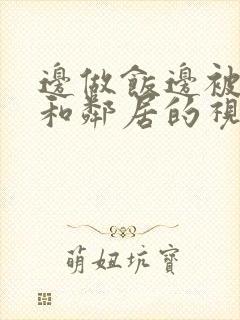 邊做飯邊被
和鄰居的視
萌妞坑寶